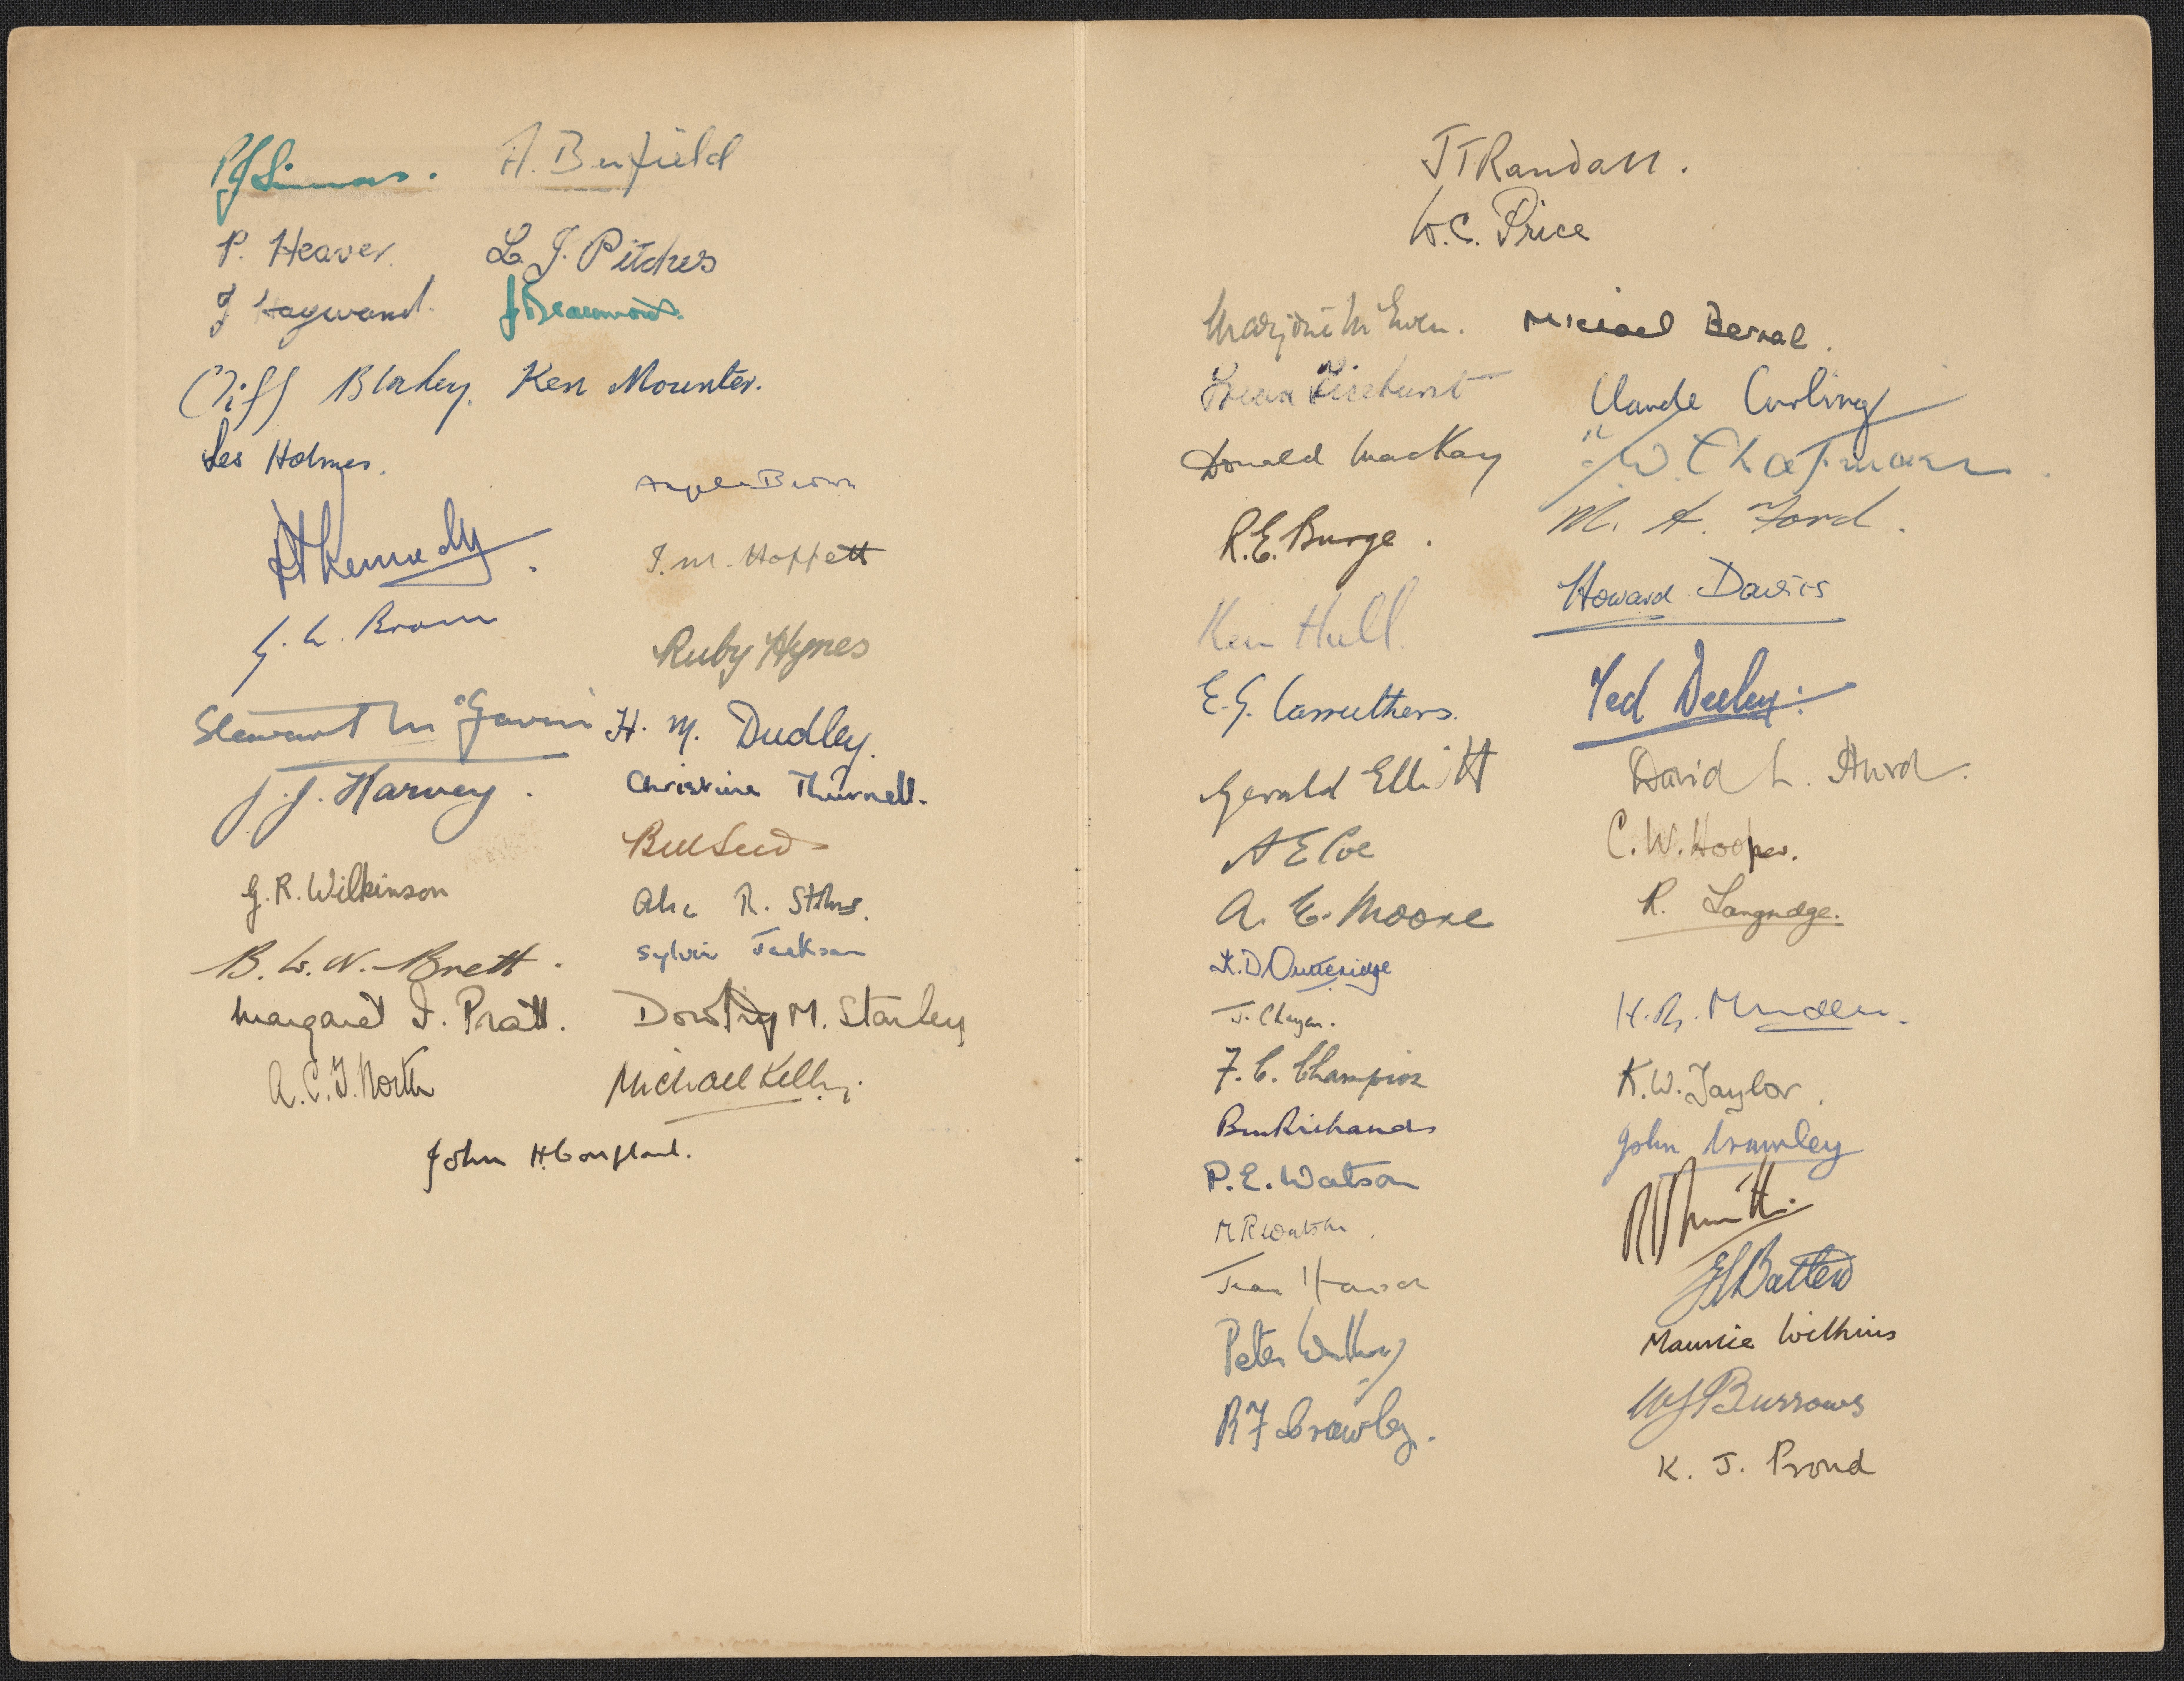 A. Benfield
P. Heaver.
L. J. Pitches
J Hayward.
J Beaumont.
Cliff Blakey.
Ken Mounter.
Les Holmes.
Angela Brown
Kennedy.
J. M. Hoffett
G. L. Brown
Ruby Hynes
Stewart McGavin
H. M. Dudley.
J. J. Harvey.
Christine Thurnell.
Bill Seeds
G. R. Wilkinson
R. Stokes.
B. W. N. Brett.
Sylvia Jackson
Margaret I. Pratt.
Dorothy M. Stanley
A. C. T. North
Michael Kelly.
John H.
J T Randall.
W. C. Price
Marjorie M'Ewen.
Michael Bernal.
Claude Curling
Donald MacKay
W. Chapman
R. E. Burge.
M. A. Ford.
Howard Davies
Ken Hull.
E. G. Carruthers.
Ted Deeley.
Gerald Elliott
David L. Hurd.
A E Coe
C. W. Hooper.
A. E. Moore
R. Langridge.
K. D. Outteridge
J. Chayen.
H. R. Munden.
F. C. Champion
K. W. Taylor.
Ben Richards
John Crawley
P. E. Watson
M R Watson.
Smith.
Jean Hanson
Batten
Peter Walker
Maurice Wilkins
R F Crawley.
W J Burrows
K. J. Proud